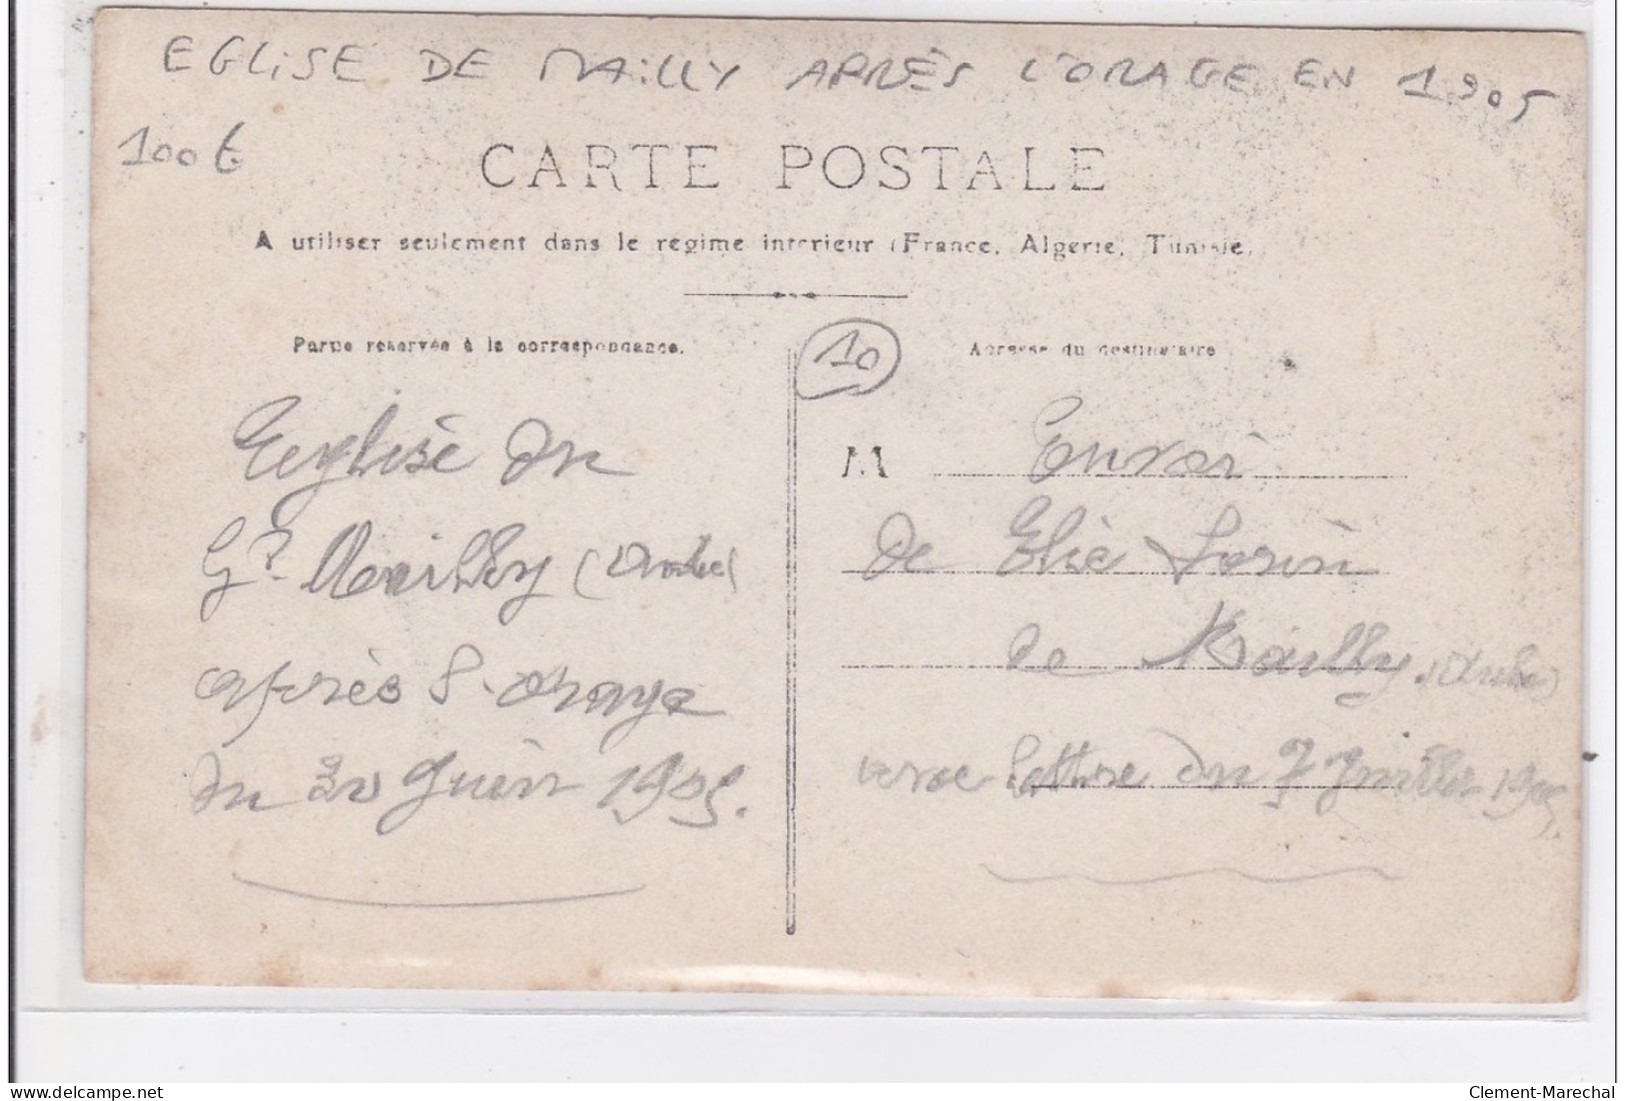 EGLISE DE MAILLY APRÈS L'ORAGE EN 1905
100€
CARTE POSTALE
A utiliser seulement dans le regime interieur (France, Algerie, Tunisie.
Partie reservée à la correspondance.
10
Adresse du destinataire
Eeglise du
Gd Mailly (Aube)
après l'orage
du 30 Juin 1905.
M Envoi
de Elie Lorin
de Mailly (Aube)
avec lettre du 7 Juillet 1905.
www.delcampe.net
Clement-Marechal